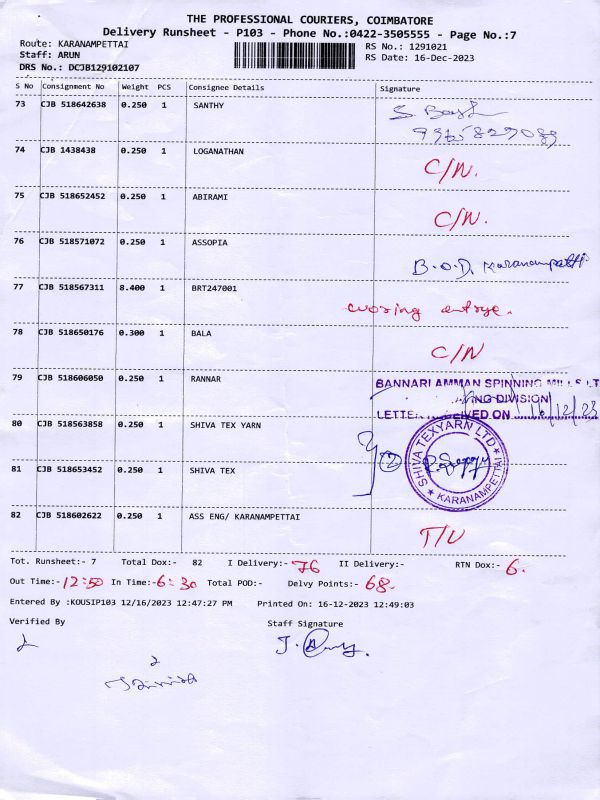 THE PROFESSIONAL COURIERS, COIMBATORE
Delivery Runsheet - P103 - Phone No.:0422-3505555 - Page No.:7
Route: KARANAMPETTAI
RS No.: 1291021
Staff: ARUN
RS Date: 16-Dec-2023
DRS No.: DCJB129102107
S No Consignment No Weight PCS Consignee Details Signature
73 CJB 518642638 0.250 1 SANTHY
74 CJB 1438438 0.250 1 LOGANATHAN C/N.
75 CJB 518652452 0.250 1 ABIRAMI C/N.
76 CJB 518571072 0.250 1 ASSOPIA B.O.D. Karanampatti
77 CJB 518567311 8.400 1 BRT247001 
78 CJB 518650176 0.300 1 BALA C/N
79 CJB 518606050 0.250 1 RANNAR BANNARI AMMAN SPINNING MILLS LT
ING DIVISION
LETTE IVED ON 16/12/23
80 CJB 518563858 0.250 1 SHIVA TEX YARN
SHIVA TEXYARN LTD
★ KARANAMPETTAI ★
81 CJB 518653452 0.250 1 SHIVA TEX
82 CJB 518602622 0.250 1 ASS ENG/ KARANAMPETTAI T/U
Tot. Runsheet:- 7 Total Dox:- 82 I Delivery:- 76 II Delivery:- RTN Dox:- 6.
Out Time:- 12:50 In Time:- 6:30 Total POD:- Delvy Points:- 68.
Entered By :KOUSIP103 12/16/2023 12:47:27 PM Printed On: 16-12-2023 12:49:03
Verified By Staff Signature